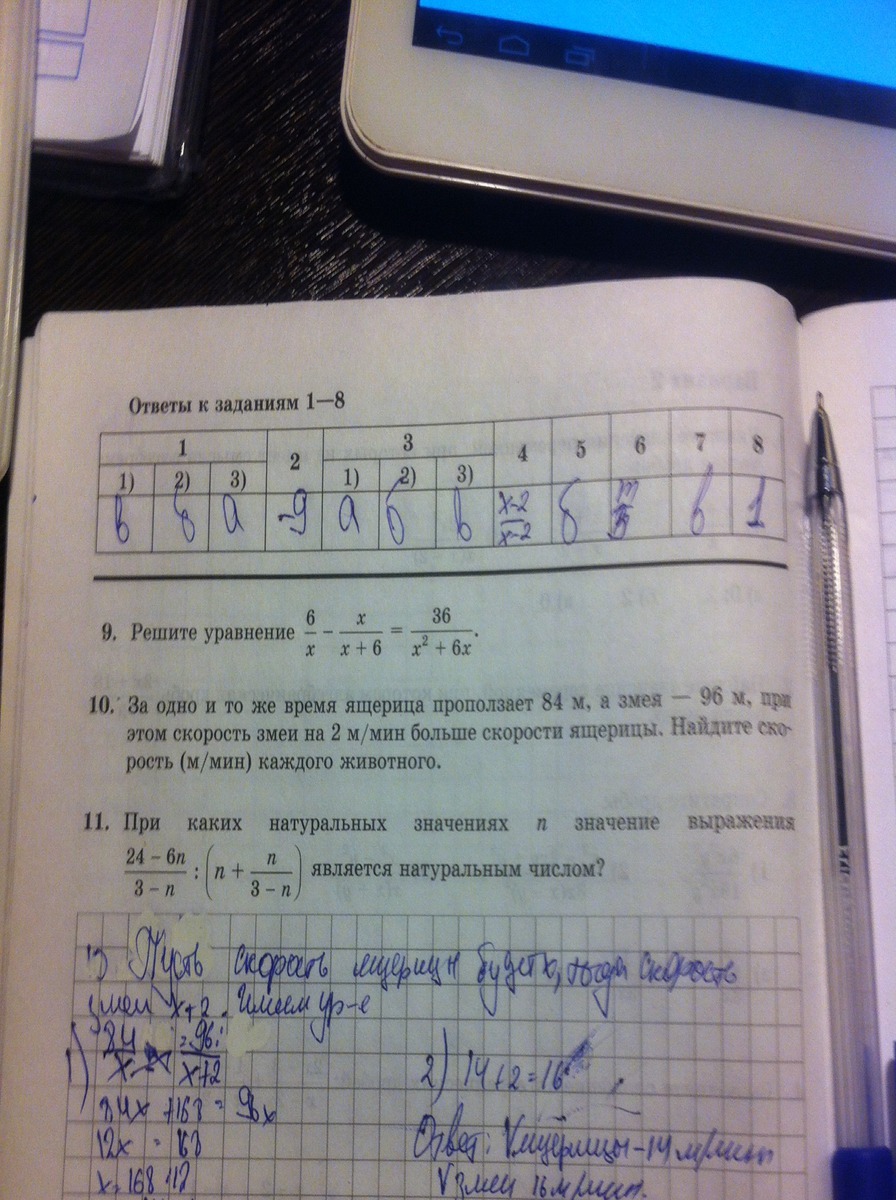 Ответы к заданиям 1—8
1 2 3 4 5 6 7 8
1) 2) 3) 1) 2) 3)
в б а -9 а б в x-2/x-2 б в 1
9. Решите уравнение 6/x − x/(x + 6) = 36/(x² + 6x).
10. За одно и то же время ящерица проползает 84 м, а змея — 96 м, при
этом скорость змеи на 2 м/мин больше скорости ящерицы. Найдите ско-
рость (м/мин) каждого животного.
11. При каких натуральных значениях n значение выражения
(24 − 6n)/(3 − n) : (n + n/(3 − n)) является натуральным числом?
Пусть скорость ящериц будет x, тогда скорость
змеи x+2. Имеем ур-е
1) 84/x = 96/(x+2)
84x + 168 = 96x
12x = 168
x = 168:12
2) 14+2=16
Ответ: V ящерицы - 14 м/мин
V змеи 16 м/мин.